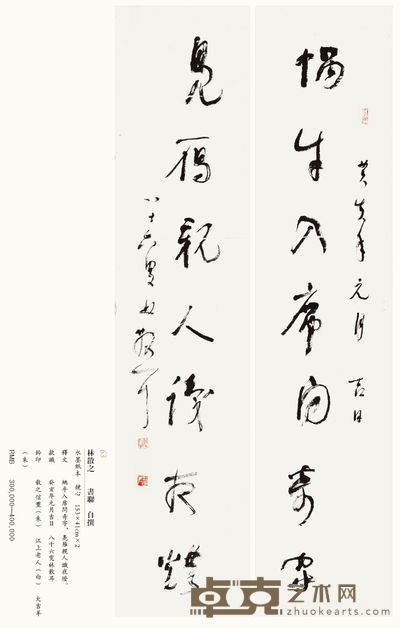 癸亥年元月吉日
蝸牛入席問奇字
見雁親人識夜燈
八十六叟林散耳
63
林散之 書聯 自撰
水墨紙本 鏡心 153×41cm×2
釋文 蝸牛入席問奇字,見雁親人識夜燈。
款識 癸亥年元月吉日 八十六叟林散耳
鈐印 散之信璽(朱) 江上老人(白) 大吉羊
(朱)
RMB 300,000—400,000
卓克艺术网
zhuokearts.com